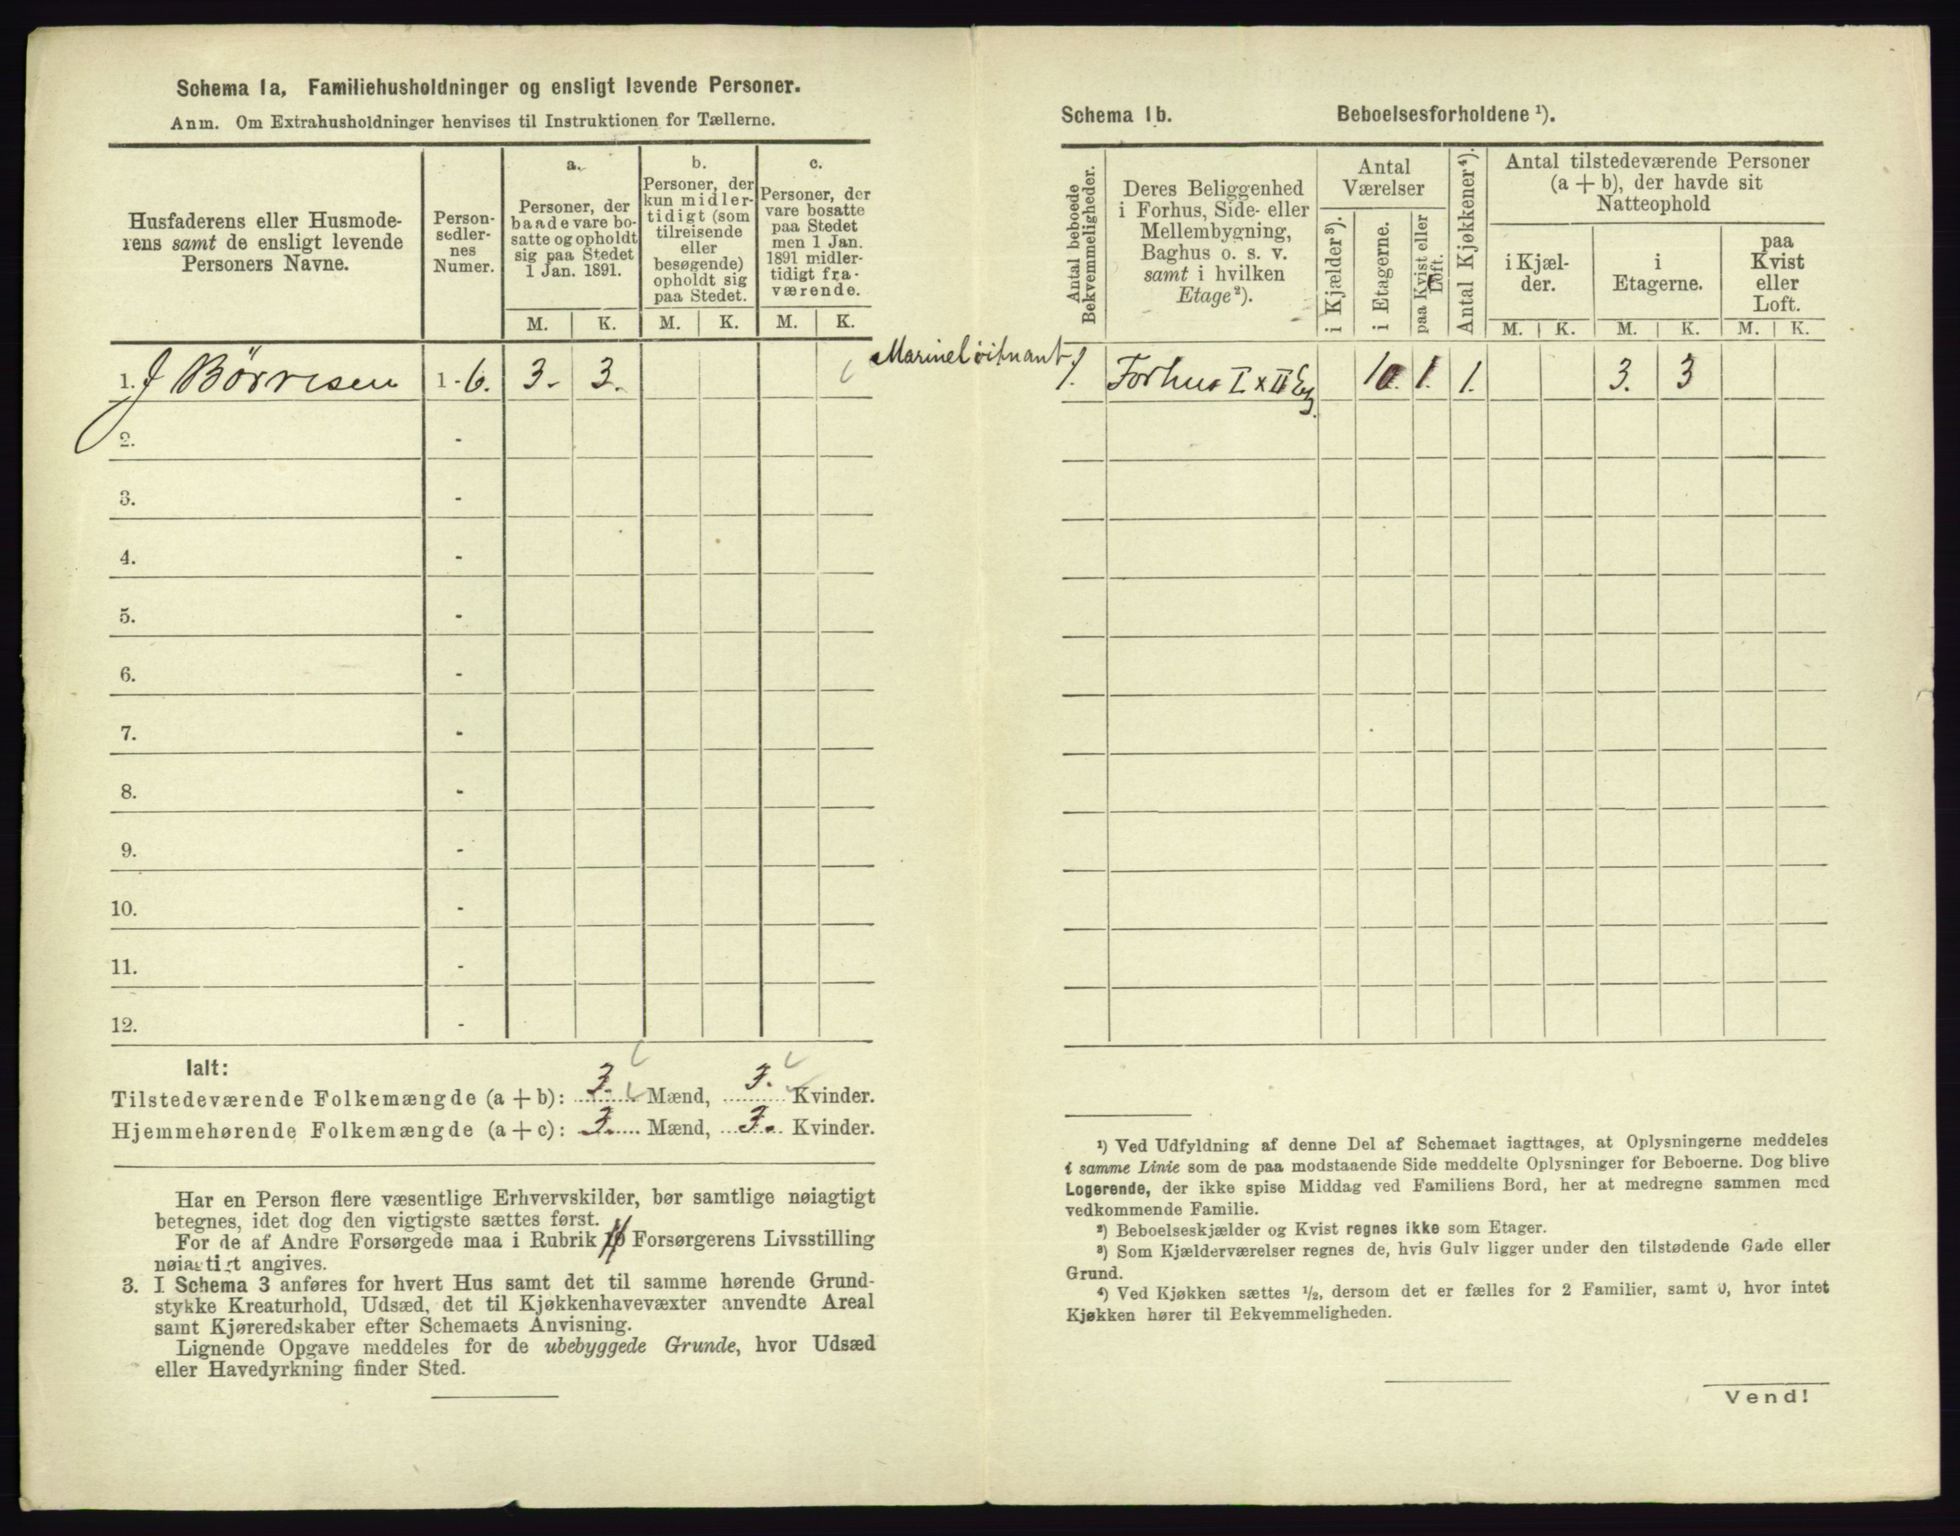 Schema 1a, Familiehusholdninger og ensligt levende Personer.
Anm. Om Extrahusholdninger henvises til Instruktionen for Tællerne.
Husfaderens eller Husmode-
rens samt de ensligt levende
Personers Navne.
Person-
sedler-
nes
Numer.
a.
Personer, der
baade vare bo-
satte og opholdt
sig paa Stedet
1 Jan. 1891.
b.
Personer, der
kun midler-
tidigt (som
tilreisende
eller
besøgende)
opholdt sig
paa Stedet.
c.
Personer, der
vare bosatte
paa Stedet
men 1 Jan.
1891 midler-
tidigt fra-
værende.
M. K. M. K. M. K.
1. J Börresen 1 - 6. 3. 3.
2. -
3. -
4. -
5. -
6. -
7. -
8. -
9. -
10. -
11. -
12. -
Ialt:
Tilstedeværende Folkemængde (a + b): 3. Mænd, 3. Kvinder.
Hjemmehørende Folkemængde (a + c): 3. Mænd, 3. Kvinder.
Har en Person flere væsentlige Erhvervskilder, bør samtlige nøiagtigt
betegnes, idet dog den vigtigste sættes først.
For de af Andre Forsørgede maa i Rubrik Forsørgerens Livsstilling
nøiagtigt angives.
3. I Schema 3 anføres for hvert Hus samt det til samme hørende Grund-
stykke Kreaturhold, Udsæd, det til Kjøkkenhavevæxter anvendte Areal
samt Kjøreredskaber efter Schemaets Anvisning.
Lignende Opgave meddeles for de ubebyggede Grunde, hvor Udsæd
eller Havedyrkning finder Sted.
Schema 1b. Beboelsesforholdene ¹).
Antal beboede
Bekvemmeligheder.
Deres Beliggenhed
i Forhus, Side- eller
Mellembygning,
Baghus o. s. v.
samt i hvilken
Etage ²).
Antal
Værelser
i Kjælder ³).
i Etagerne.
paa Kvist eller
Loft.
Antal Kjøkkener ⁴).
Antal tilstedeværende Personer
(a + b), der havde sit
Natteophold
i Kjæl-
der.
i
Etagerne.
paa
Kvist
eller
Loft.
M. K. M. K. M. K.
Marinelöitnant 1. Forhus I x II Eg. 10. 1. 1. 3. 3
¹) Ved Udfyldning af denne Del af Schemaet iagttages, at Oplysningerne meddeles
i samme Linie som de paa modstaaende Side meddelte Oplysninger for Beboerne. Dog blive
Logerende, der ikke spise Middag ved Familiens Bord, her at medregne sammen med
vedkommende Familie.
²) Beboelseskjælder og Kvist regnes ikke som Etager.
³) Som Kjælderværelser regnes de, hvis Gulv ligger under den tilstødende Gade eller
Grund.
⁴) Ved Kjøkken sættes ½, dersom det er fælles for 2 Familier, samt 0, hvor intet
Kjøkken hører til Bekvemmeligheden.
Vend!